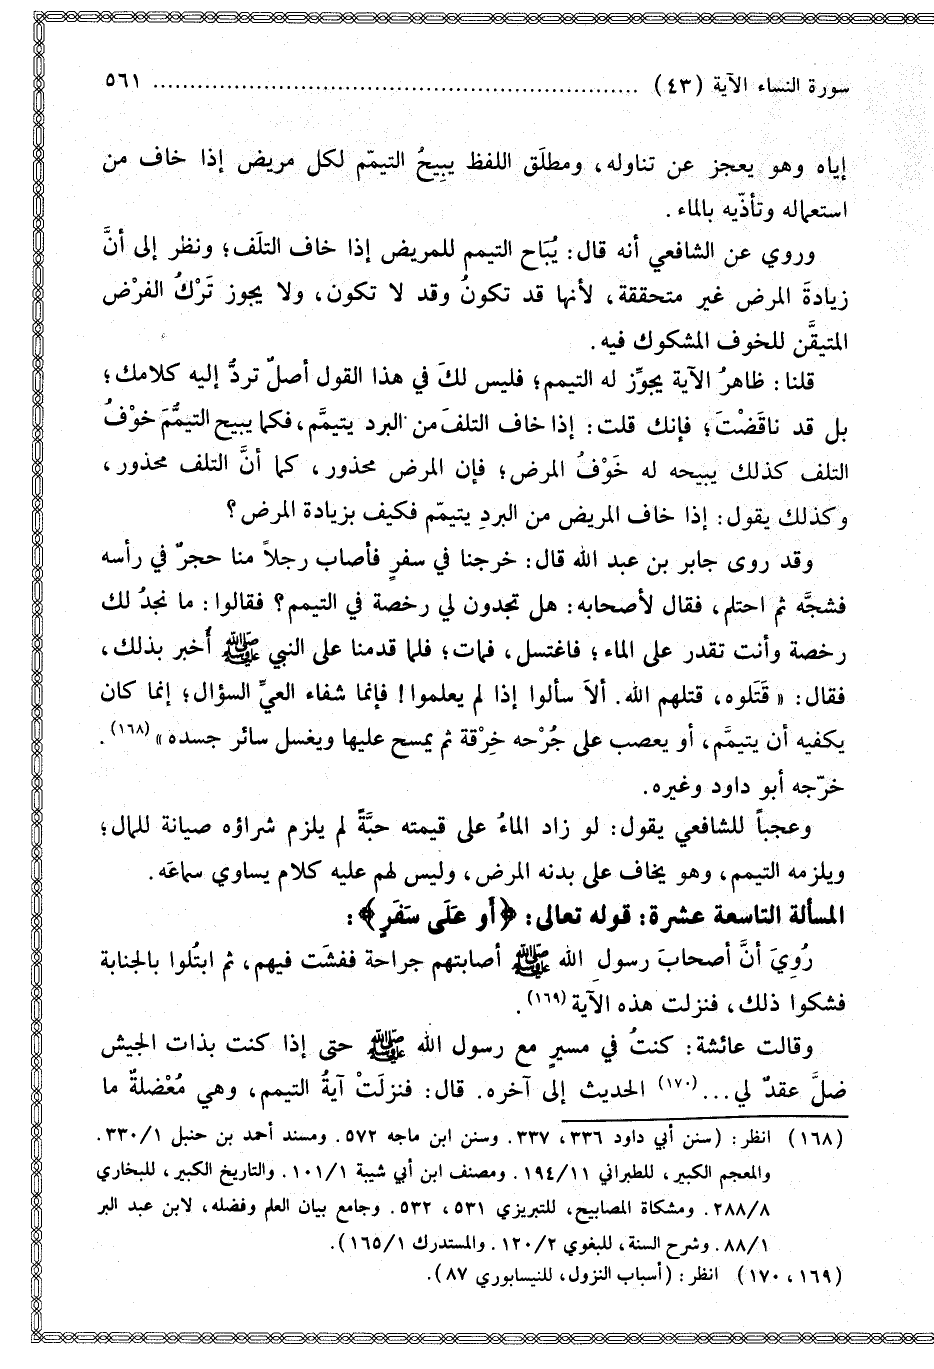 سورة النساء الآية (٤٣) ................................................................. ٥٦١
إياه وهو يعجز عن تناوله، ومطلَق اللفظ يبِيحُ التيمّم لكل مريض إذا خاف من
استعماله وتأذّيه بالماء.
وروي عن الشافعي أنه قال: يُبَاح التيمم للمريض إذا خاف التلَف؛ ونظر إلى أنَّ
زيادةَ المرض غير متحققة، لأنها قد تكونُ وقد لا تكون، ولا يجوز تَرْكُ الفرْض
المتيقَّن للخوف المشكوك فيه.
قلنا: ظاهرُ الآية يجوِّز له التيمم؛ فليس لكَ في هذا القول أصلٌ تردُّ إليه كلامك؛
بل قد ناقَضْتَ؛ فإنك قلت: إذا خاف التلفَ من البرد يتيمَّم، فكما يبيح التيمُّمَ خوْفُ
التلف كذلك يبيحه له خَوْفُ المرض؛ فإن المرض محذور، كما أنَّ التلف محذور،
وكذلك يقول: إذا خاف المريض من البردِ يتيمّم فكيف بزيادة المرض؟
وقد روى جابر بن عبد الله قال: خرجنا في سفرٍ فأصاب رجلاً منا حجرٌ في رأسه
فشجَّه ثم احتلم، فقال لأصحابه: هل تجدون لي رخصة في التيمم؟ فقالوا: ما نجدُ لك
رخصة وأنت تقدر على الماء؛ فاغتسل، فمات؛ فلما قدمنا على النبي ﷺ أُخبر بذلك،
فقال: « قَتَلوه، قتلهم الله. ألاَ سألوا إذا لم يعلموا! فإنما شفاء العيِّ السؤال؛ إنما كان
يكفيه أن يتيمَّم، أو يعصب على جُرْحه خِرْقة ثم يمسح عليها ويغسل سائر جسده » (١٦٨).
خرّجه أبو داود وغيره.
وعجباً للشافعي يقول: لو زاد الماءُ على قيمته حبَّةً لم يلزم شراؤه صيانة للمال؛
ويلزمه التيمم، وهو يخاف على بدنه المرض، وليس لهم عليه كلام يساوي سماعَه.
المسألة التاسعة عشرة: قوله تعالى: ﴿أَو عَلَى سَفَرٍ﴾:
رُوِيَ أنَّ أصحابَ رسولِ الله ﷺ أصابتهم جراحة ففشَت فيهم، ثم ابتُلوا بالجنابة
فشكوا ذلك، فنزلت هذه الآية (١٦٩).
وقالت عائشة: كنتُ في مسيرٍ مع رسول الله ﷺ حتى إذا كنت بذات الجيش
ضلَّ عقدٌ لي... (١٧٠) الحديث إلى آخره. قال: فنزلَتْ آيةُ التيمم، وهي مُعْضلةٌ ما
(١٦٨) انظر: (سنن أبي داود ٣٣٦، ٣٣٧. وسنن ابن ماجه ٥٧٢. ومسند أحمد بن حنبل ٣٣٠/١.
والمعجم الكبير، للطبراني ١٩٤/١١. ومصنف ابن أبي شيبة ١٠١/١. والتاريخ الكبير، للبخاري
٢٨٨/٨. ومشكاة المصابيح، للتبريزي ٥٣١، ٥٣٢. وجامع بيان العلم وفضله، لابن عبد البر
٨٨/١. وشرح السنة، للبغوي ١٢٠/٢. والمستدرك ١٦٥/١).
(١٦٩، ١٧٠) انظر: (أسباب النزول، للنيسابوري ٨٧).